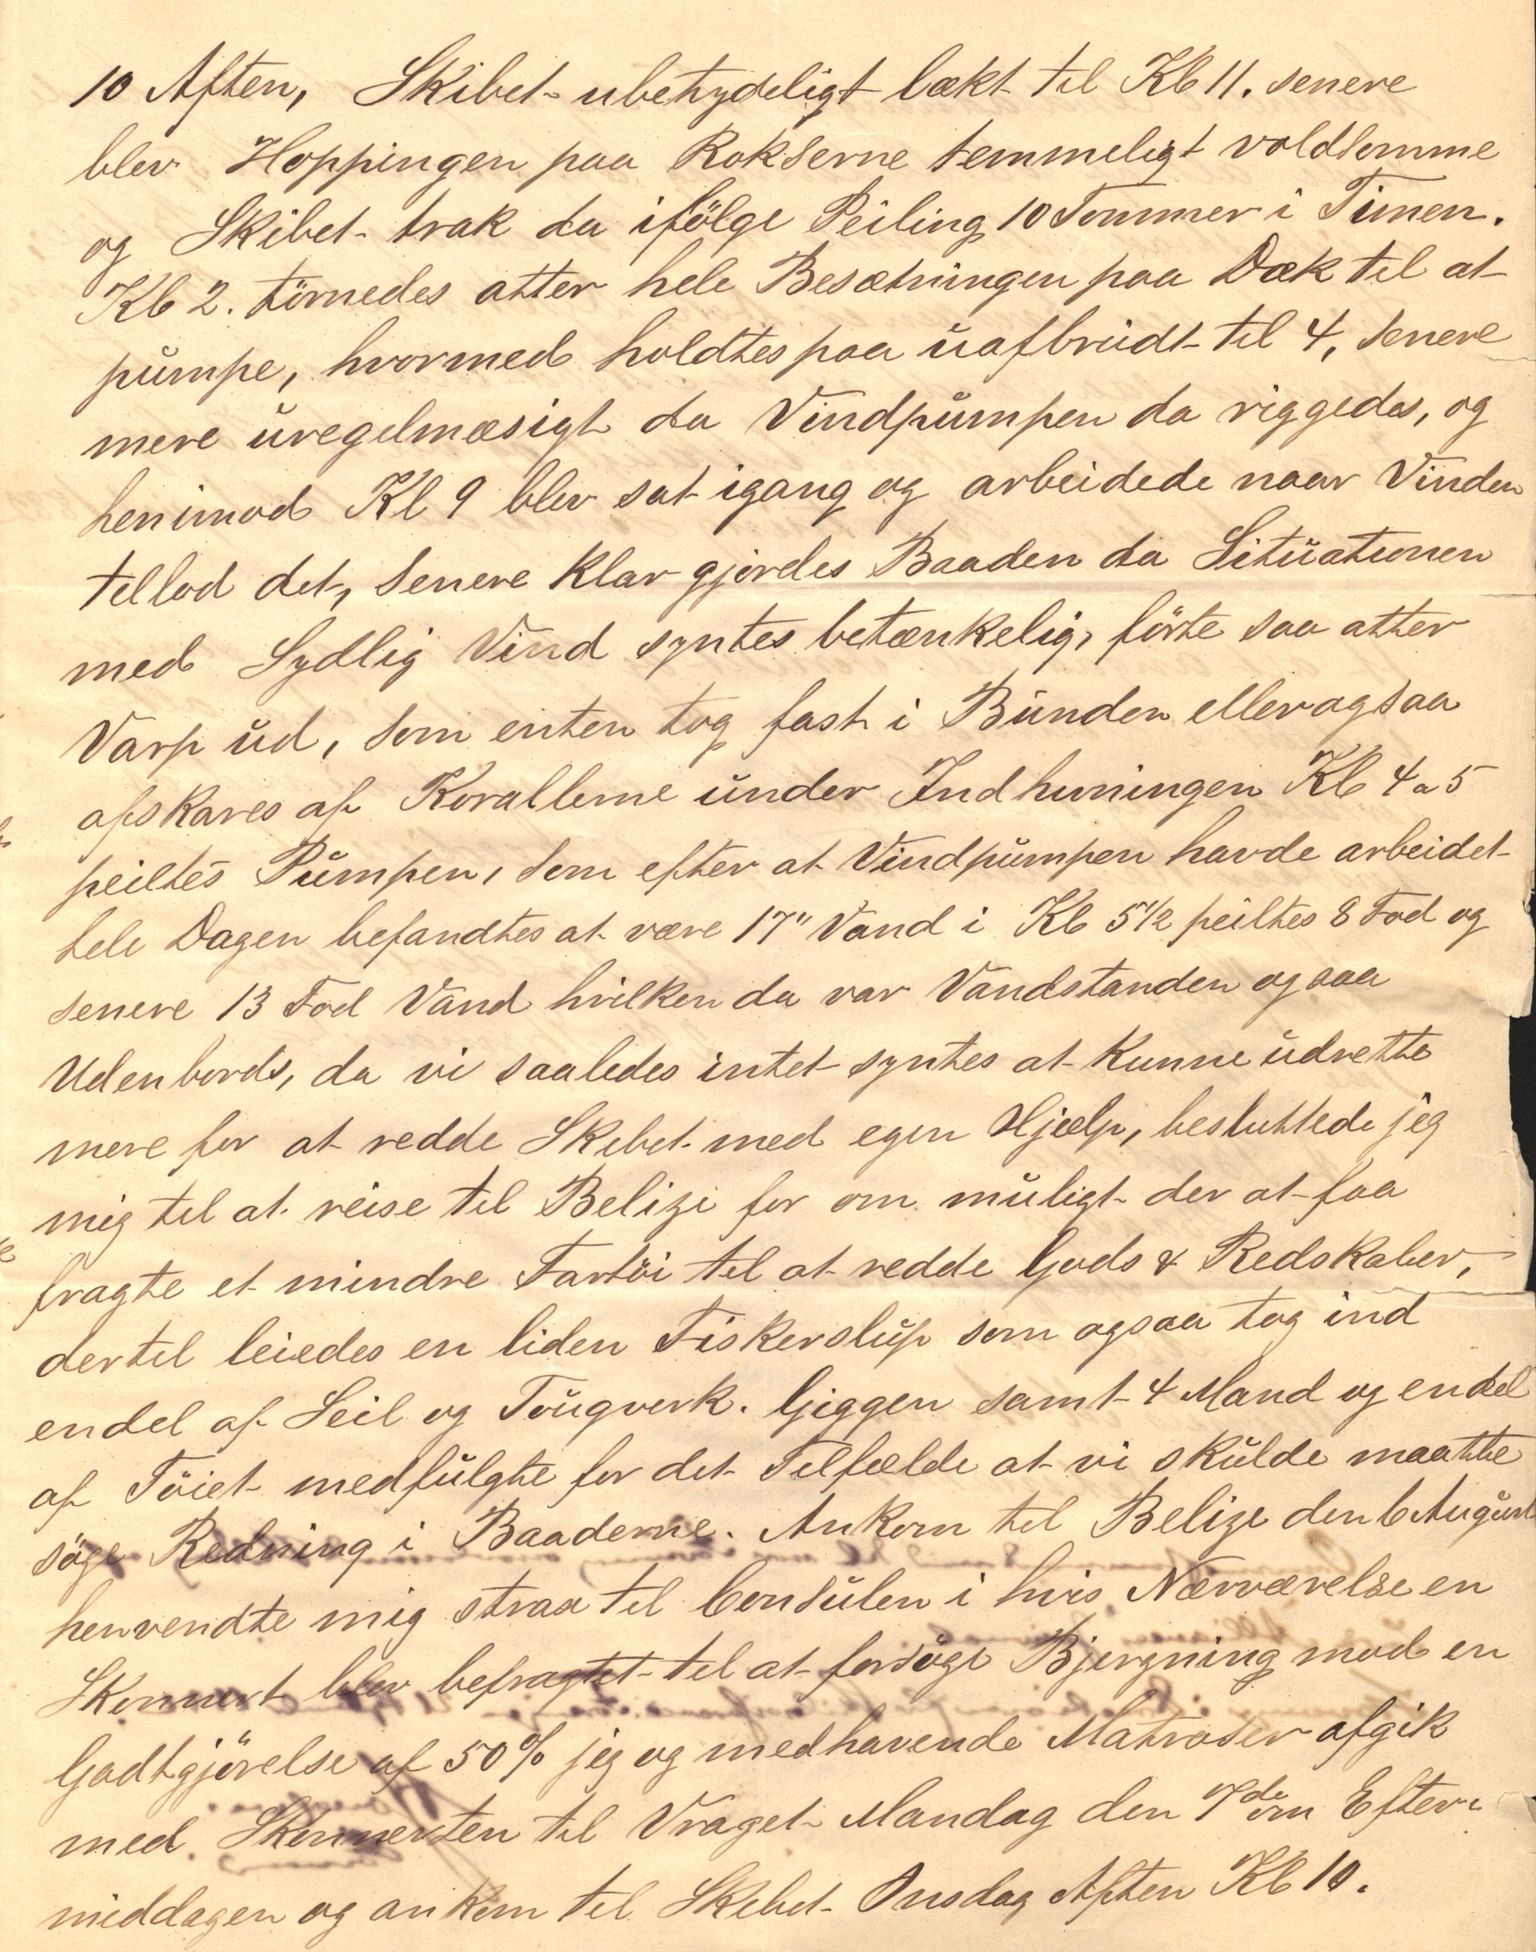 10 Aften, Skibet ubetydeligt lækt til Kl 11. senere
blev Hoppingen paa Rokserne temmeligt voldsomme
og Skibet trak da ifölge Peiling 10 Tommer i Timen.
Kl 2. törnedes atter hele Besætningen paa Dæk til at
pumpe, hvormed holdtes paa uafbrudt til 4, senere
mere uregelmæsigt da Vindpumpen da riggedes, og
henimod Kl 9 blev sat igang og arbeidede naar Vinden
tillod det, senere klar gjordes Baaden da Situationen
med Sydlig Vind syntes betænkelig, förte saa atter
Varp ud, som enten tog fast i Bunden eller ogsaa
afskares af Korallerne under Indhivningen Kl 4 a 5
peiltes Pumpen, som efter at Vindpumpen havde arbeidet
hele Dagen befandtes at være 17" Vand i Kl 5 1/2 peiltes 8 Fod og
senere 13 Fod Vand hvilken da var Vandstanden ogsaa
Udenbords, da vi saaledes intet syntes at kunne udrette
mere for at redde Skibet med egen Hjælp, besluttede jeg
mig til at reise til Belize for om muligt der at faa
fragte et mindre Fartöi til at redde Gods & Redskaber,
dertil leiedes en liden Fiskerslup som ogsaa tog ind
endel af Seil og Tougverk. Giggen samt 4 Mand og endel
af Töiet medfulgte for det Tilfælde at vi skulde maatte
söge Redning i Baaderne. Ankom til Belize den 6 August
henvendte mig straa til Consulen i hvis Nærværelse en
Skonnert blev befragtet til at forsöge Bjergning mod en
Godtgjörelse af 50% jeg og medhavende Matroser afgik
med Skonnerten til Vraget Mandag den 7de om Efter-
middagen og ankom til Skibet Onsdag Aften Kl 10.